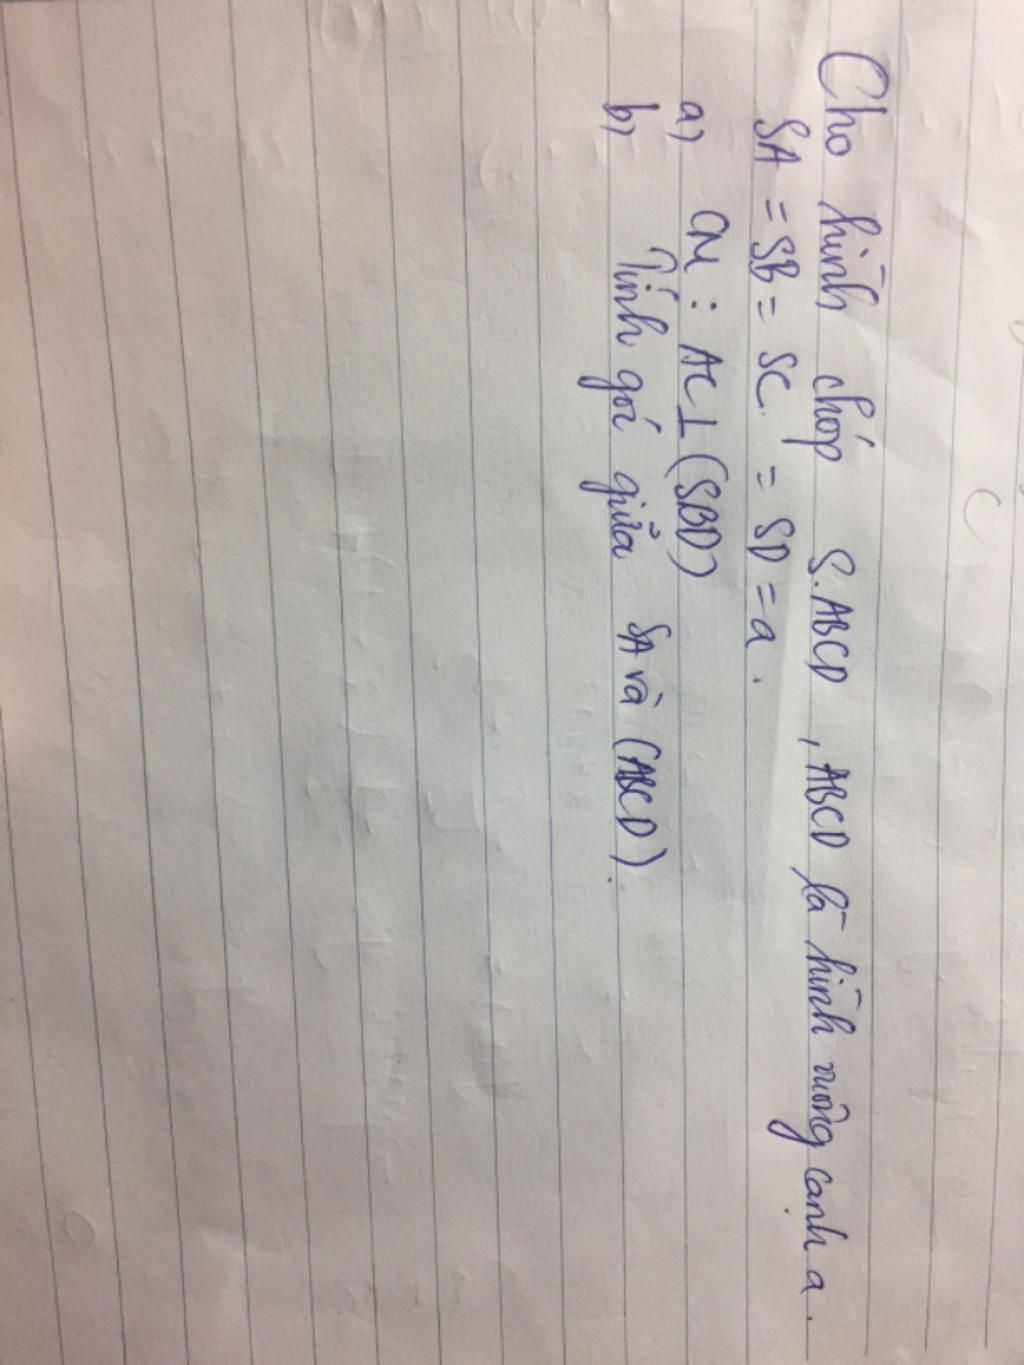 Cho hình chóp S.ABCD, ABCD là hình vuông cạnh a.
SA = SB = SC = SD = a.
a) CM: AC⊥(SBD)
b) Tính gó giữa SA và (ABCD).